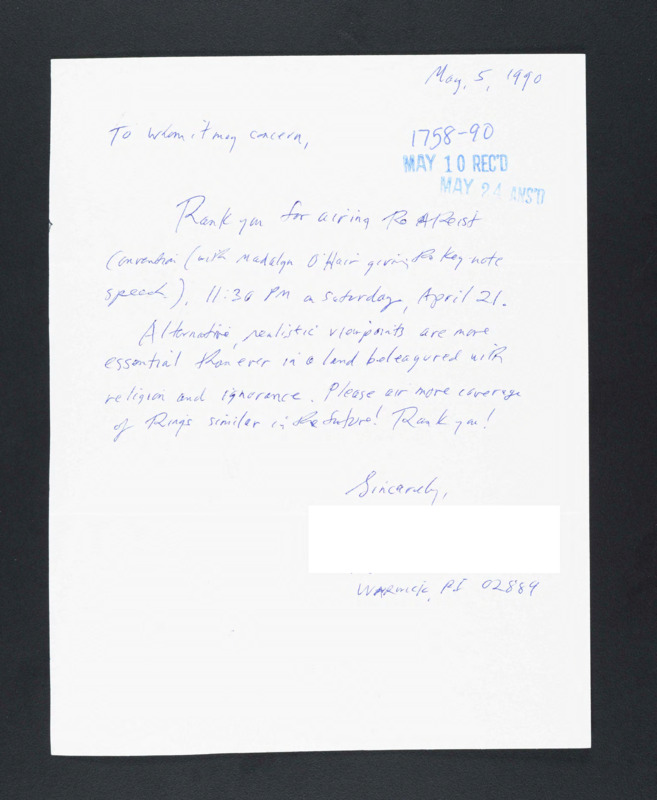 May, 5, 1990
To whom it may concern,
1758-90
MAY 10 REC'D
MAY 24 ANS'D
Thank you for airing the Atheist
Convention (with Madalyn O'Hair giving the key note
speech), 11:30 PM on Saturday, April 21.
Alternative, realistic viewpoints are more
essential than ever in a land beleagured with
religion and ignorance. Please air more coverage
of things similar in the future! Thank you!
Sincerely,
Warwick, RI 02889